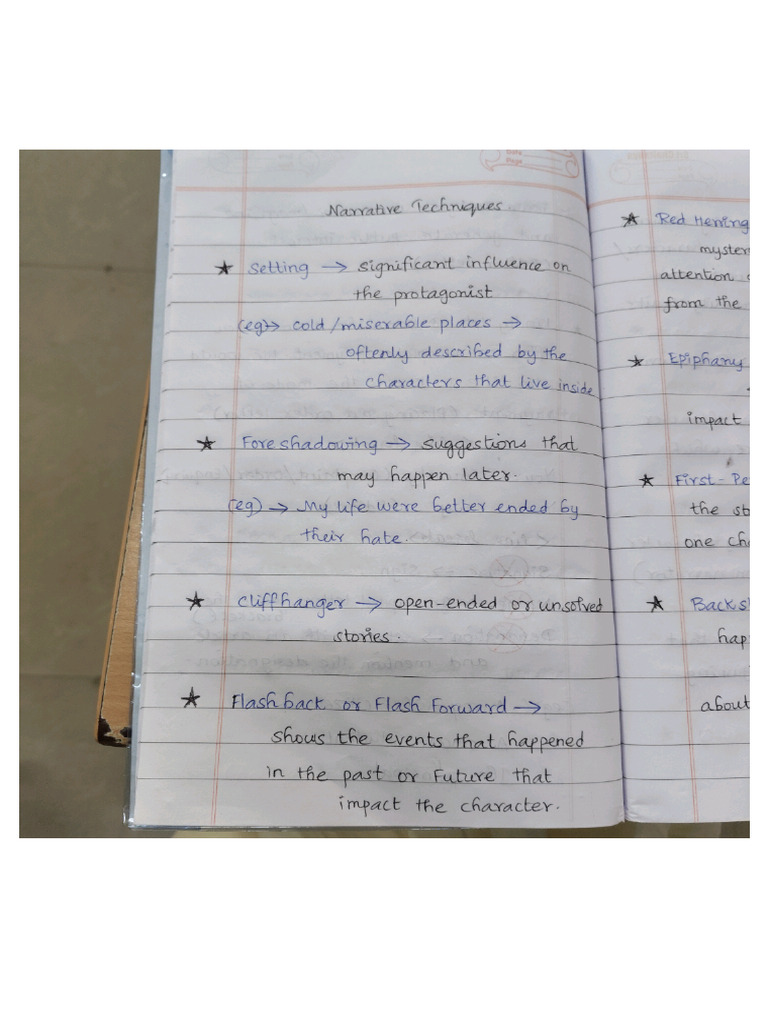 Narrative Techniques
★ Setting → significant influence on
the protagonist
(eg)→ cold/miserable places →
oftenly described by the
characters that live inside
★ Foreshadowing → suggestions that
may happen later.
(eg) → My life were better ended by
their hate.
★ Cliffhanger → open-ended or unsolved
stories.
★ Flashback or Flash Forward →
shows the events that happened
in the past or Future that
impact the character.
Date
Page
★ Red Herring
attention
from the
★ Epiphany
impact
★ First-
the
one
★
about